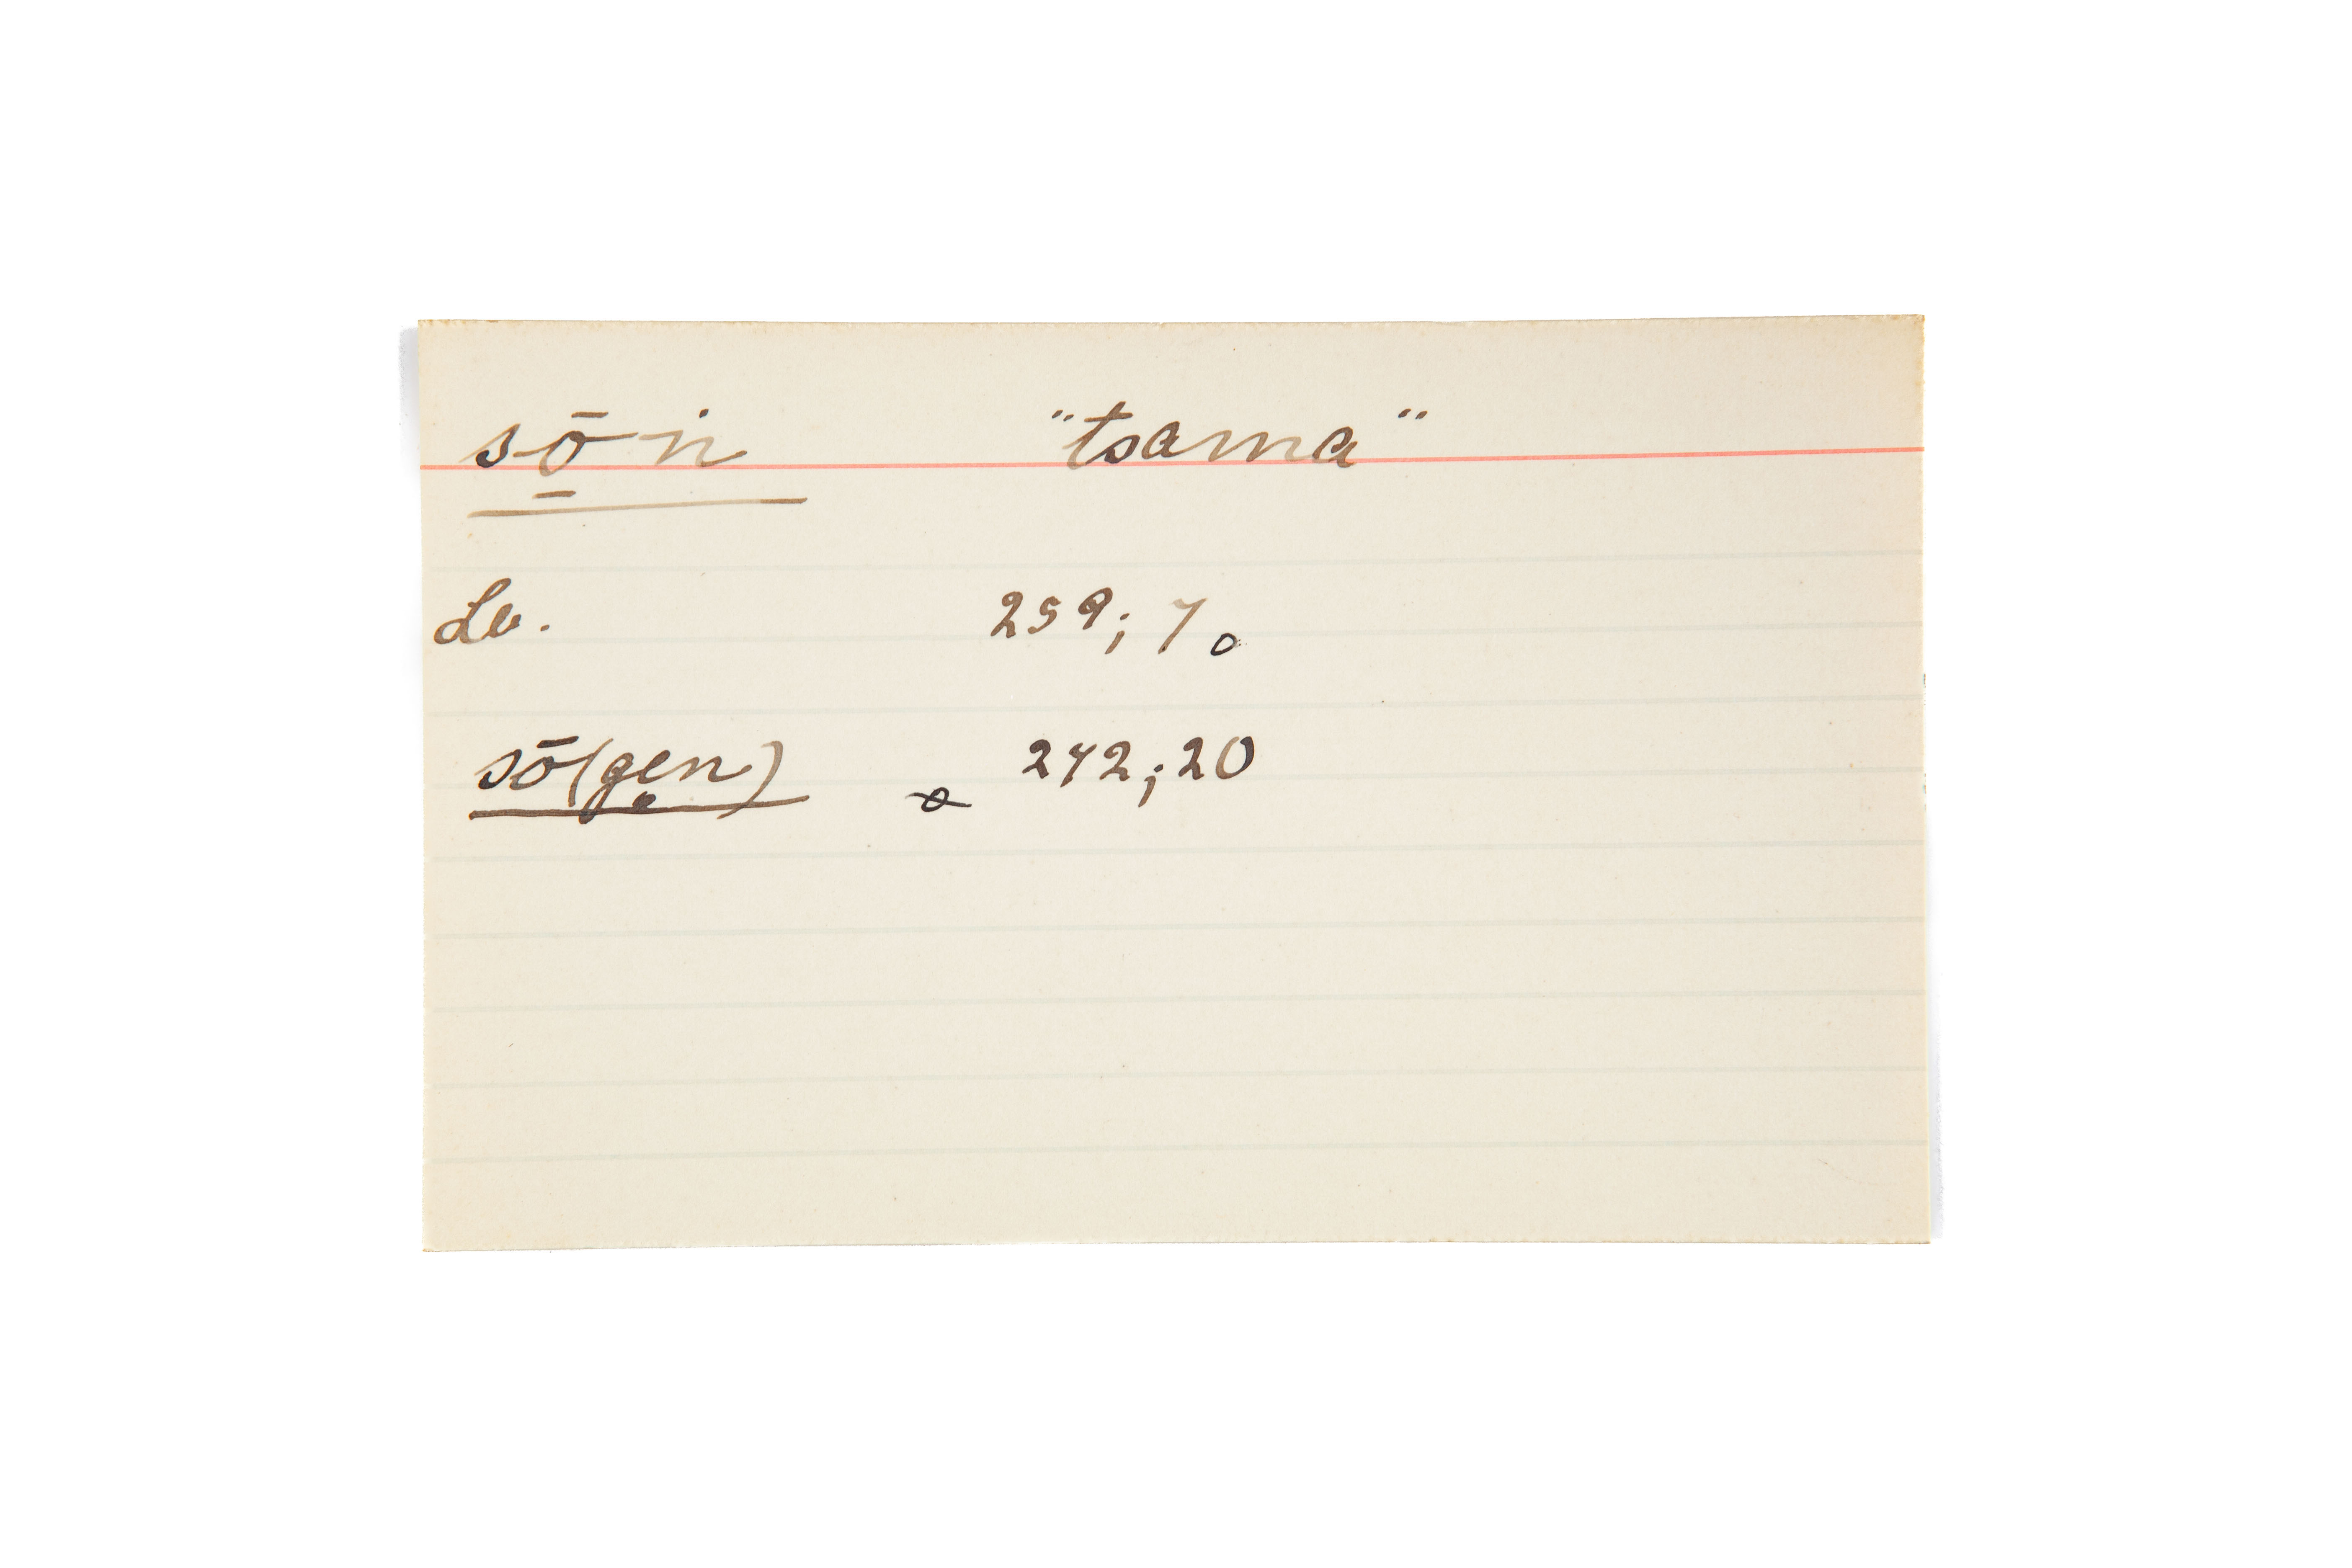 sō̱-in "tsama"
Lv. 259; 7.
sō(gen) x 272; 20